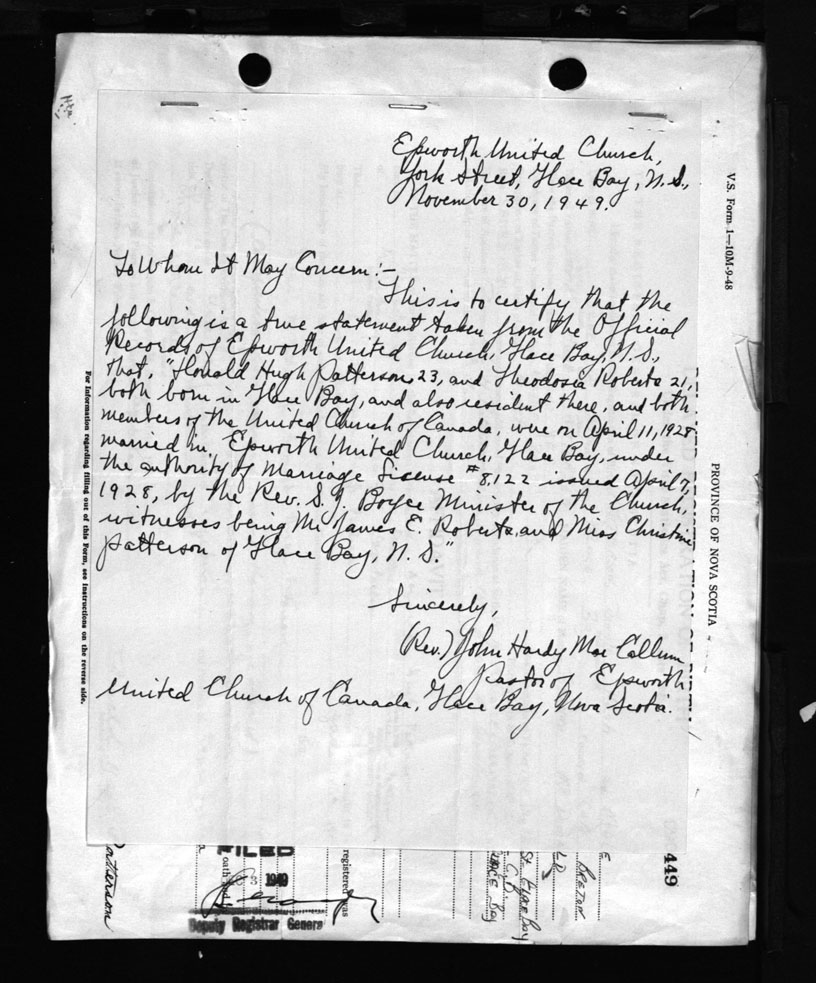 Epworth United Church,
York Street, Glace Bay, N.S.,
November 30, 1949.
To Whom It May Concern:-
This is to certify that the
following is a true statement taken from the Official
Records of Epworth United Church, Glace Bay, N.S.,
that, "Honald Hugh Patterson, 23, and Theodosia Roberts 21,
both born in Glace Bay, and also resident there, and both
members of the United Church of Canada, were on April 11, 1928
married in Epworth United Church, Glace Bay, under
the authority of Marriage License #8122 issued April 7,
1928, by the Rev. S. J. Boyce Minister of the Church,
witnesses being Mr. James E. Roberts, and Miss Christine
Patterson of Glace Bay, N.S."
Sincerely,
(Rev.) John Hardy Mac Callum
Pastor of Epworth
United Church of Canada, Glace Bay, Nova Scotia.
V.S. Form 1—10M-9-48
PROVINCE OF NOVA SCOTIA
For Information regarding filling out of this Form, see Instructions on the reverse side.
449
BRETON
St.
Glace Bay
registered was
FILED
oath
1949
Deputy Registrar General
Patterson